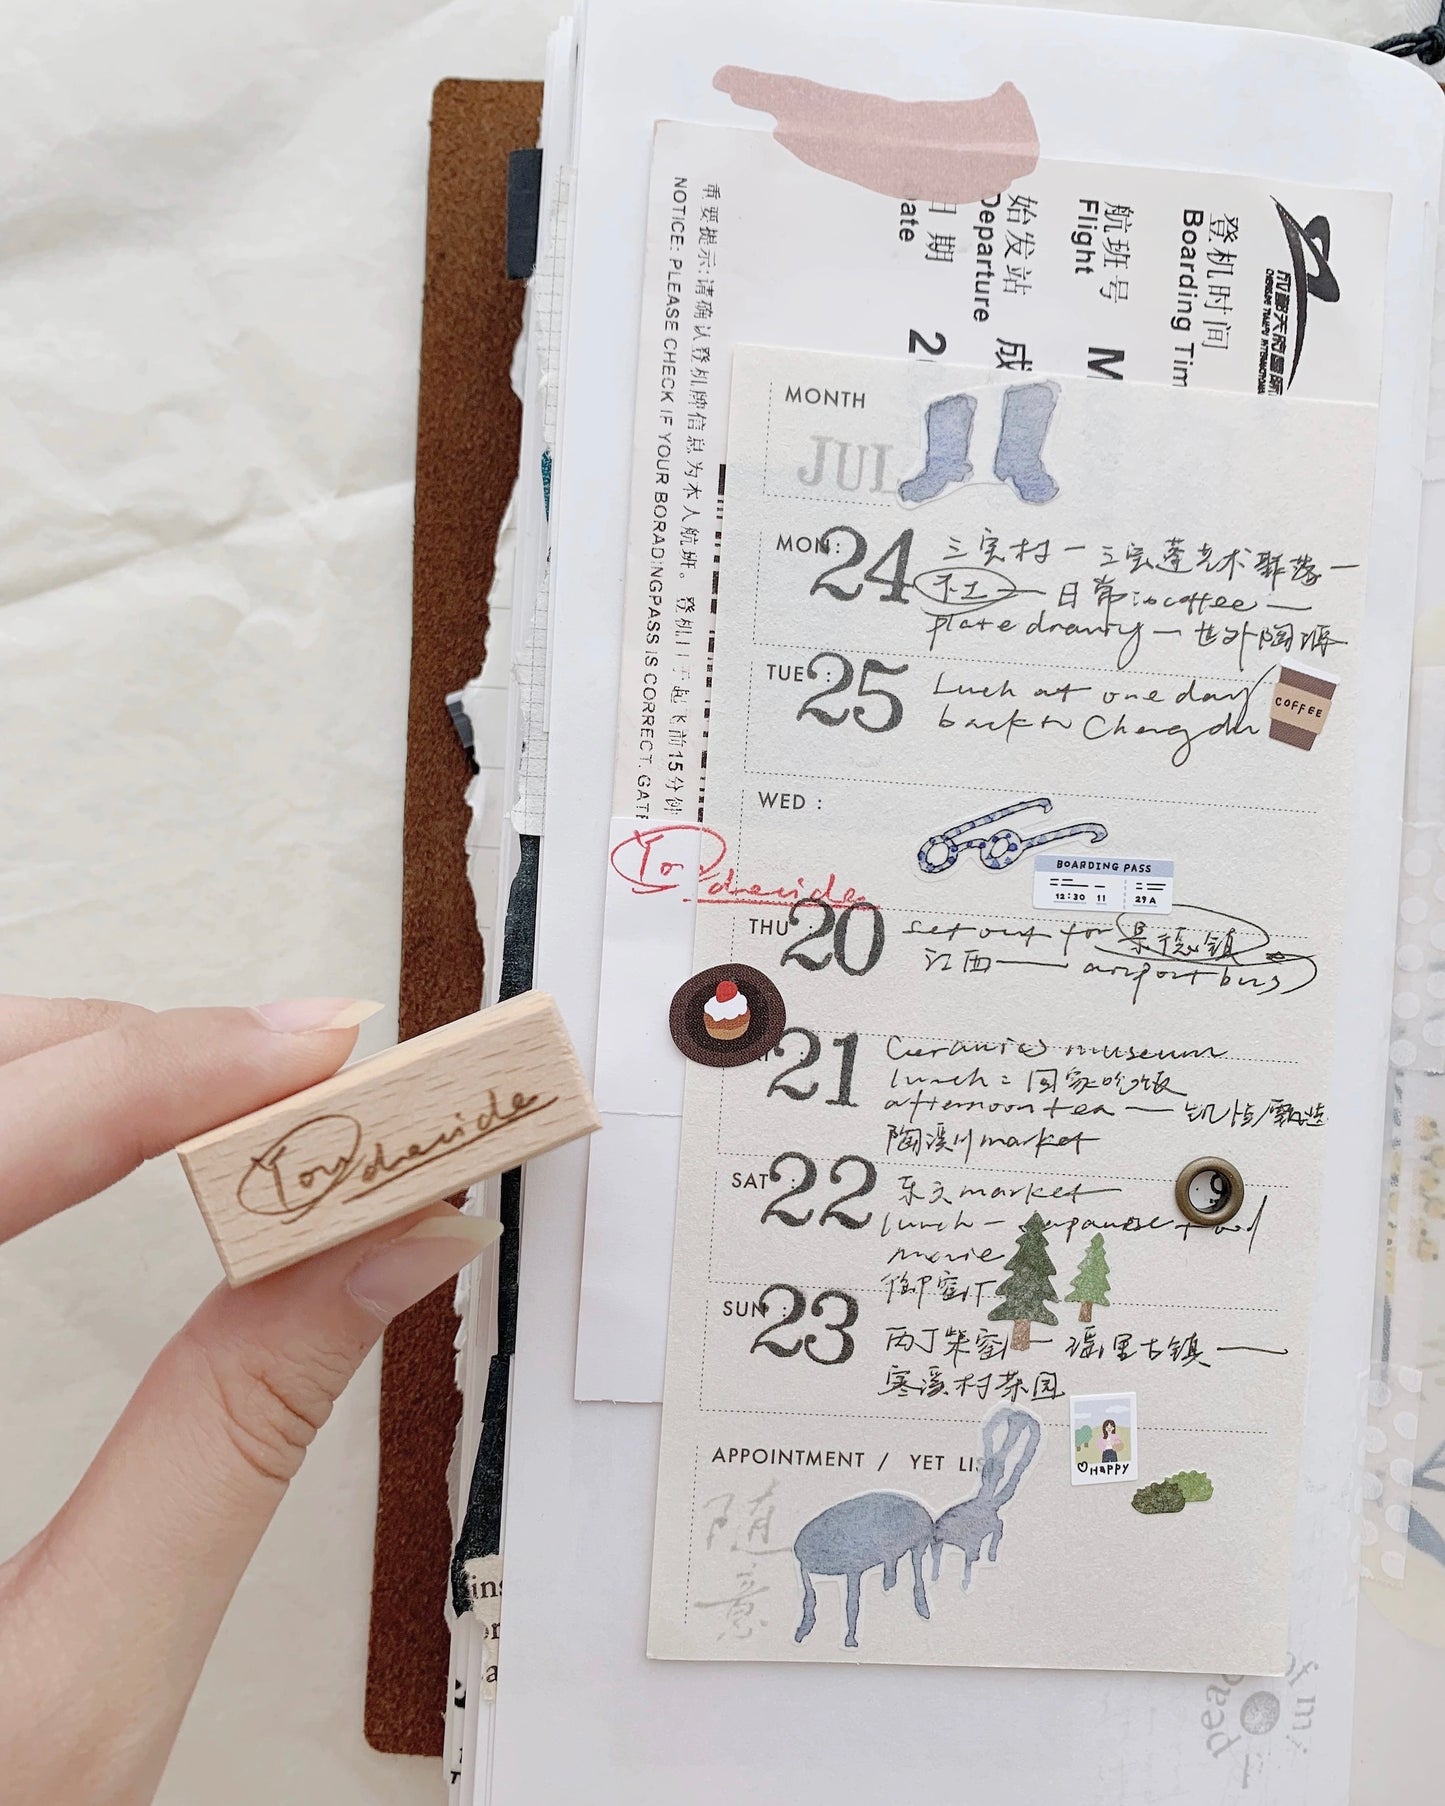 重要提示:请确认登机牌信息为本人航班。登机口于起飞前15分钟
NOTICE: PLEASE CHECK IF YOUR BORADINGPASS IS CORRECT. GATE
登机时间
Boarding Tim
航班号
Flight
M
始发站
Departure
成
日期
ate
2
MONTH
JUL
MON:
24
三宝村 — 三宝蓬艺术聚落 —
日常 coffee —
plate drawing — 世外陶源
TUE :
25
Luch at one day
back to Chengdu
COFFEE
WED :
BOARDING PASS
12:30 11 29A
You decide
THU
20
set out for 景德镇
江西 — airport bus
21
Ceramics museum
lunch: 回家吃饭
afternoon tea —
陶溪川 market
SAT
22
乐天 market
lunch — Japanese food
movie
御窑厂
9
SUN :
23
丙丁柴窑 — 瑶里古镇 —
寒溪村茶园
APPOINTMENT / YET LIS
HAPPY
随意
You decide
of my